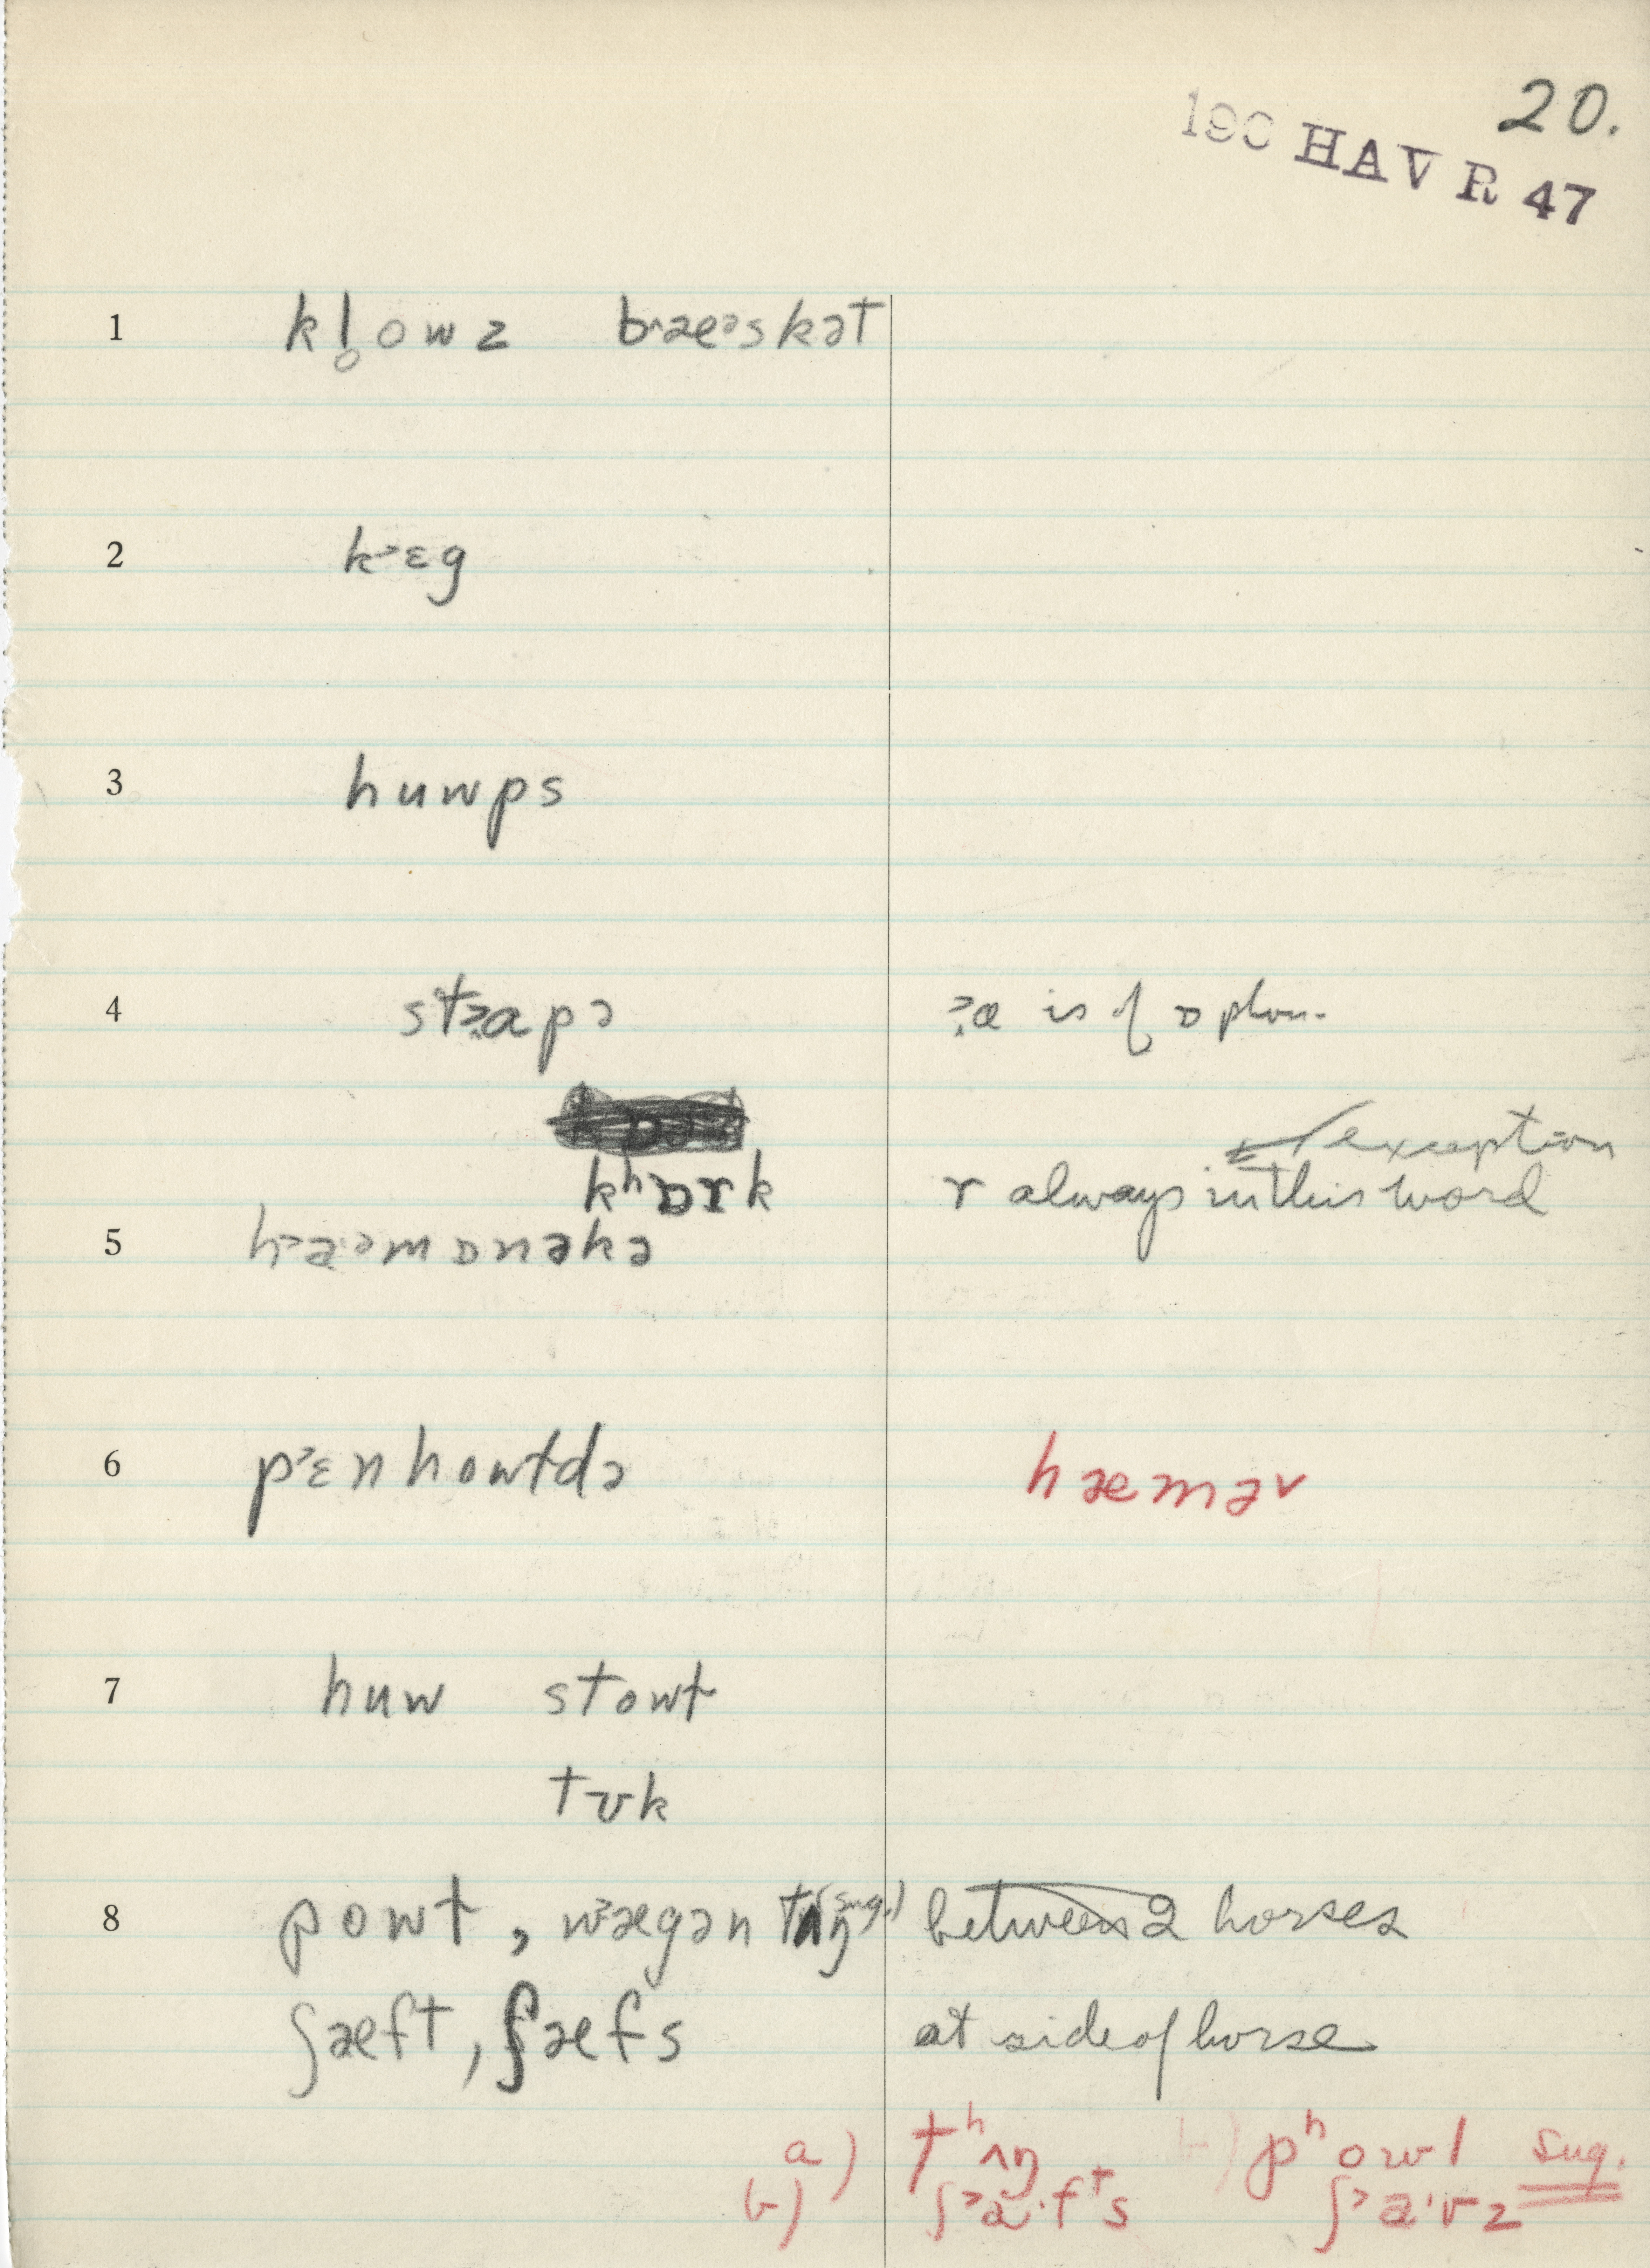 20.
190 HAV R 47
1 kl̥owz bræᵊskət
2 k˃ɛg
3 huwps
4 st˃apə ˃a is of ɒ phon.
exception
kʰɒrk r always in this word
5 h˃a·ᵊmɒnəkə
6 p˃ɛnhowldə hæmər
7 huw stowt
tʊk
8 powt, w˃ægən tʌŋ (sug.) between 2 horses
ʃæft, ʃæfs at side of horse
a) tʰʌŋ b) pʰowl sug.
b) ʃ˃a·fᵗs ʃ˃a·vz